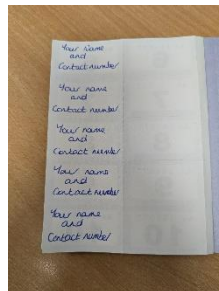 Your Name
and
Contact number
Your name
and
Contact number
Your name
and
Contact number
Your name
and
Contact number
Your name
and
Contact number